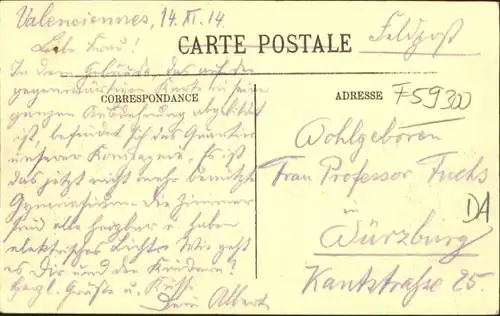 Valenciennes, 14. XI. 14
Feldpost
CARTE POSTALE
Liebe Frau!
In dem Gebäude, das auf der
gegenwärtigen Karte in seiner
ganzen Ausdehnung abgebildet
ist, befindet sich das Quartier
unserer Kompagnie. Es ist
das jetzt nicht mehr benützte
Gymnasium. Die Zimmer
sind alle heizbar u. haben
elektrisches Licht. Wie geht
es Dir und den Kindern?
Herzl. Grüße u. Küsse
Dein Albert
CORRESPONDANCE
ADRESSE
F59300
Wohlgeboren
Frau Professor Fuchs
in
Würzburg
Kantstraße 25.
DA